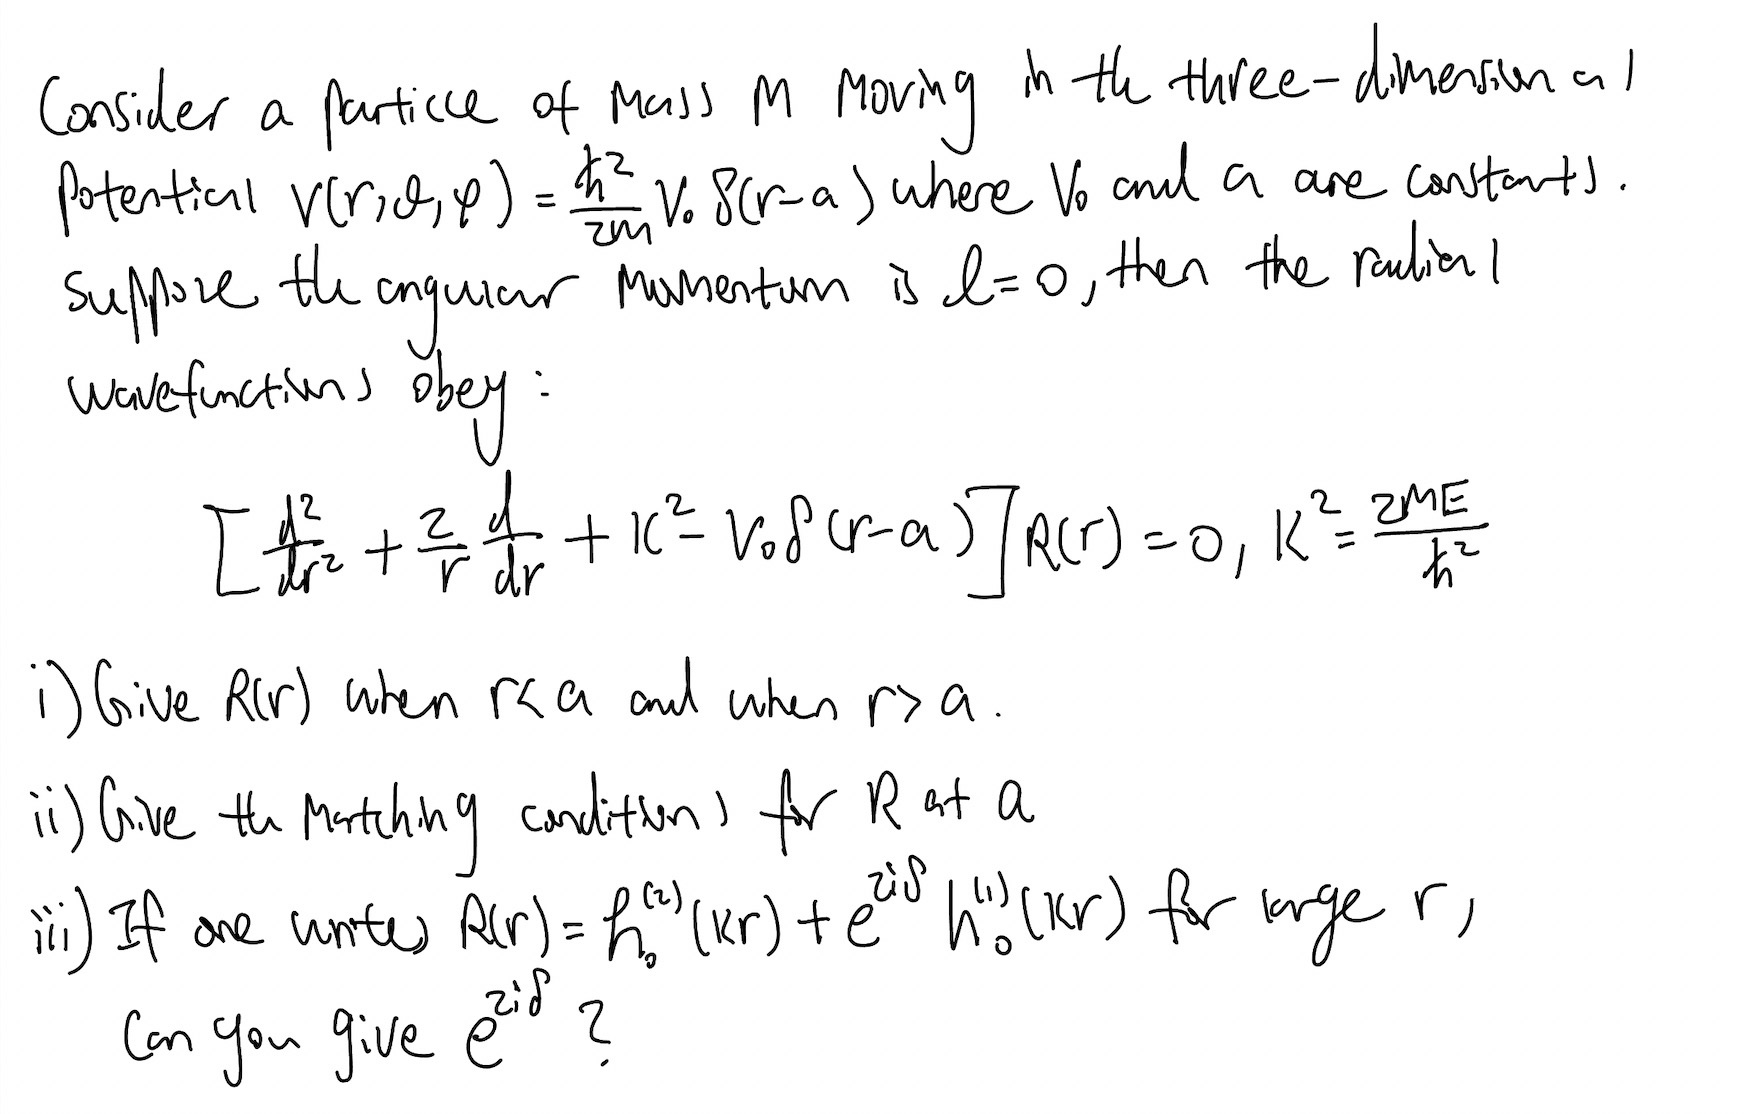 Consider a particle of mass M moving in the three-dimensional
potential V(r,θ,φ) = ħ²/2m V₀ δ(r-a) where V₀ and a are constants.
suppose the angular momentum is l=0, then the radial
wavefunctions obey:
[d²/dr² + 2/r d/dr + K² - V₀δ(r-a)] R(r) = 0, K² = 2ME/ħ²
i) Give R(r) when r<a and when r>a.
ii) Give the matching conditions for R at a
iii) If one writes R(r) = h₀⁽²⁾(kr) + e^{2iδ} h₀⁽¹⁾(kr) for large r,
Can you give e^{2iδ} ?